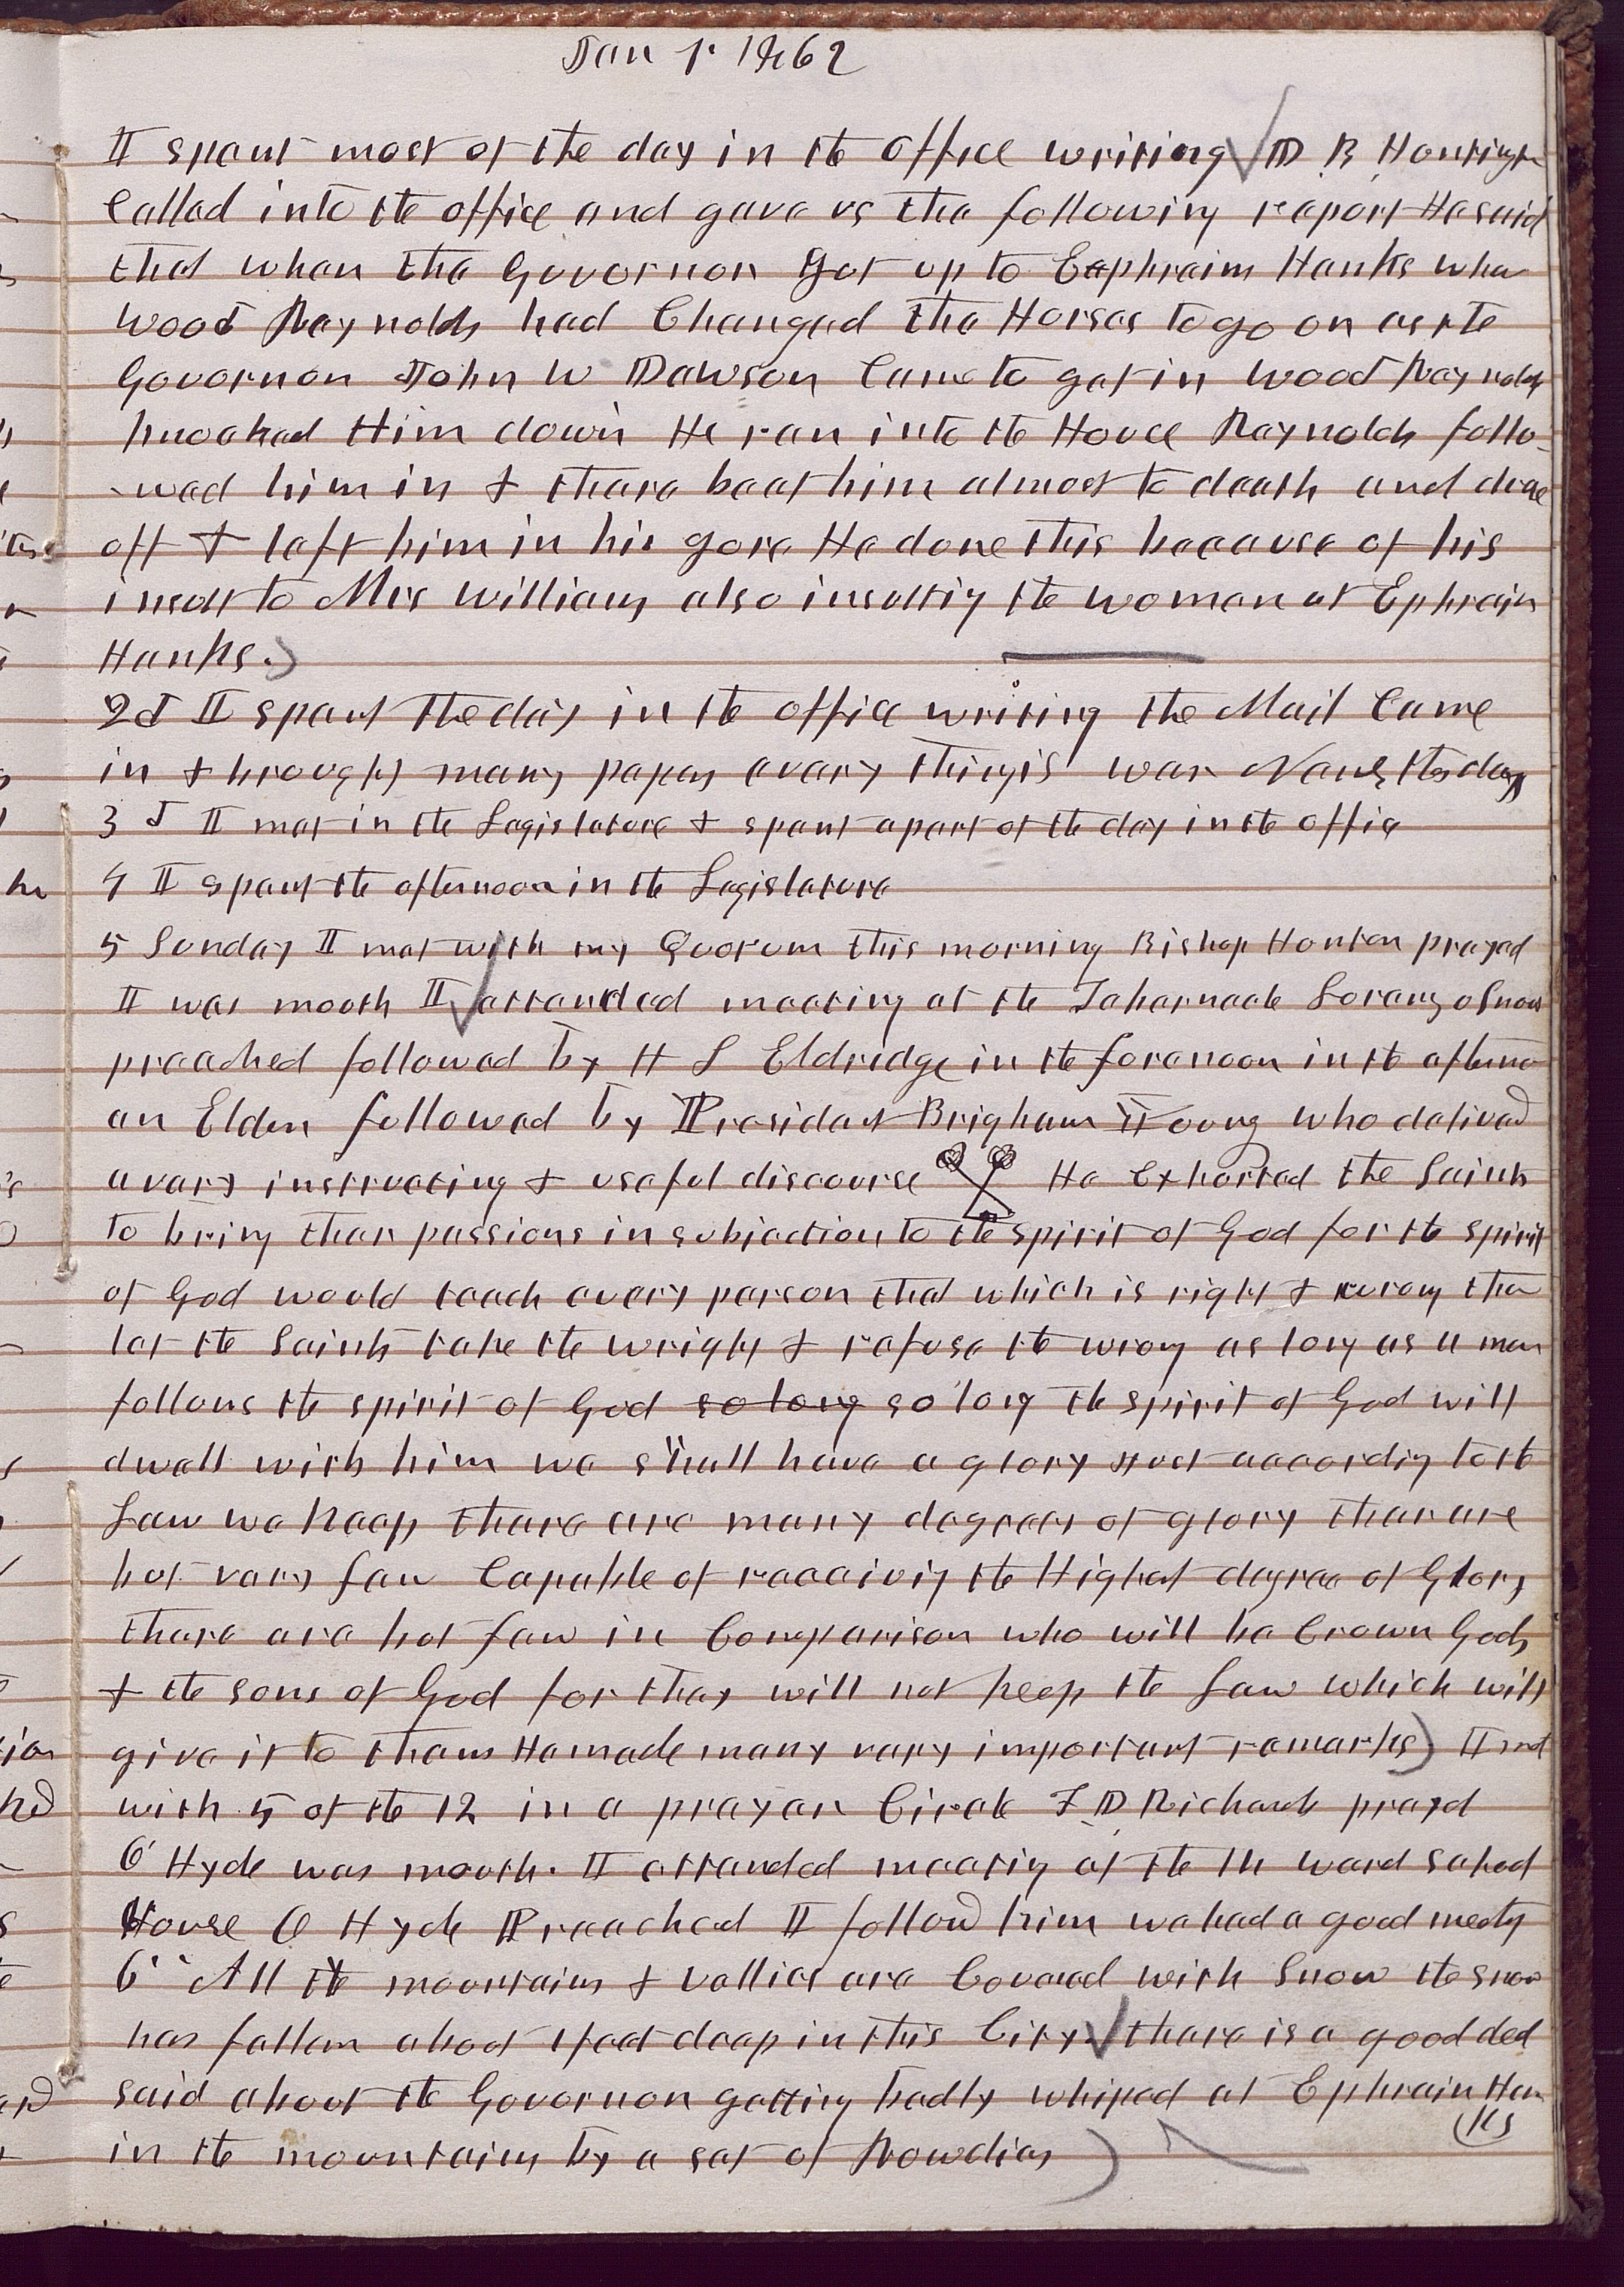 Jan 1. 1862
I spent most of the day in the office writing D B Huntington
Called into the office and gave us the following report He said
that when the Governor got up to Eaphraim Hanks whare
Wood Raynolds had Changed the Horses to go on as the
Governor John W Dawson Came to get in Wood Raynolds
knocked Him down He ran into the House Raynolds follo-
-wed him in & there beat him almost to death and drove
off & left him in his gore He done this because of his
insult to Mrs Williams also insulting the women at Ephraim
Hanks.
2d I spent the day in the office writing the Mail Came
in & brought many papers evry thing is war News these days
3d I met in the Legislature & spent a part of the day in the office
4 I spent the afternoon in the Legislature
5 Sunday I met with my Quorum this morning Bishop Hunter prayed
I was mouth I attended meeting at the Tabernacle Lorenzo Snow
preached followed by H S Eldridge in the forenoon in the afternoon
an Elder followed by President Brigham Young who delived
a very instructing & useful discourse He Exhorted the Saints
to bring their passions in subjection to the spirit of God for the spirit
of God would teach every person that which is right & wrong then
let the Saints take the wright & refuse the wrong as long as a man
follows the spirit of God so long so long the spirit of God will
dwell with him we shall have a glory just according to the
Law we keep there are many degrees of glory ther are
but very few Capable of receiving the Highest degree of Glory
there are but few in Comparison who will be Crown Gods
& the sons of God for they will not keep the Law which will
give it to them He made many very important remarks I met
with 5 of the 12 in a prayer Circle F D Richards prayd
O Hyde was mouth. I attended meeting at the 14 ward School
House O Hyde Preached I followd him we had a good meeting
6 All the mountains & vallies are Covered with Snow the snow
has fallen about 1 foot deep in this City there is a good deel
said about the Governor getting badly whiped at Ephraim Han
ks
in the mountains by a set of Rowdies